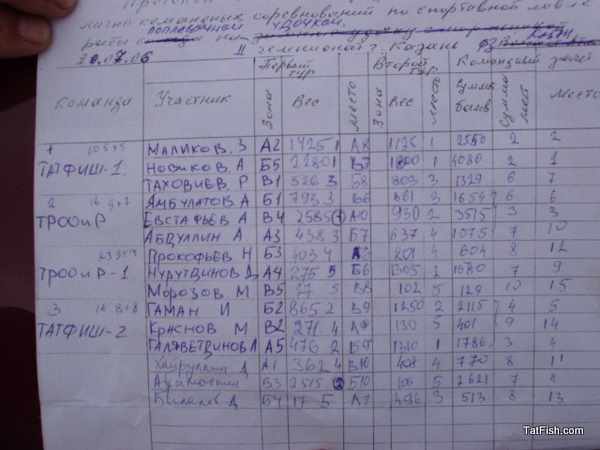 лично командных соревнований по спортивной ловле
поплавочной удочкой.
рыбы
II чемпионат г. Казани
Команда Участник Зона Первый тур Вес Место Зона Второй тур Вес Место Командный зачет Сумма балов Сумма мест Место
МАЛИКОВ. З А2 1425 1 А8 1125 1 2550 2 2
ТАТФИШ-1 НОВИКОВ. А Б5 2280 1 В7 1800 1 4080 2 1
ТАХОВИЕВ. Р В1 526 3 Б8 803 3 1329 6 7
2 ЯМБУЛАТОВ А Б1 793 3 В6 861 3 1654 6 6
ТРООиР ЕВСТАФЬЕВ А В4 2585 А10 930 2 3515 3 3
АБДУЛЛИН А А3 438 3 Б7 637 4 1075 7 10
ПРОКОФЬЕВ Н Б3 403 4 201 4 604 8 12
ТРООиР-1 НУРУТДИНОВ А4 275 5 Б6 1305 2 1580 7 9
МОРОЗОВ М В5 27 5 102 5 129 10 15
3 ГАМАН И Б2 865 2 В9 1250 2 2115 4 5
ТАТФИШ-2 КРАСНОВ М В2 271 4 А9 130 5 401 9 14
ГАЛЯВЕТДИНОВ А5 476 2 Б9 1 1786 3 4
Хайруллин А1 362 4 В10 408 4 770 8 11
В3 2515 Б10 106 5 2621 7 8
Б4 17 5 А7 496 3 513 8 13
TatFish.com